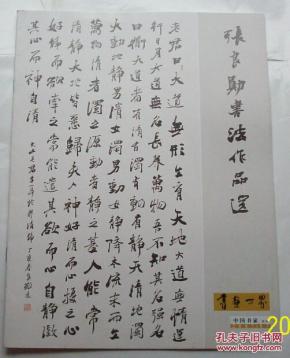 張良勛書法作品選
老君曰大道無形生育天地大道無情運
行日月大道無名長養萬物吾不知其名強名
曰道夫道者有清有濁有動有靜天清地濁
天動地靜男清女濁男動女靜降本流末而生
萬物清者濁之源動者靜之基人能常
清靜天地皆悉歸夫人神好清而心擾之心
好靜而欲牽之常能遣其欲而心自靜澄
其心而神自清
書畫世界
中国书家
20